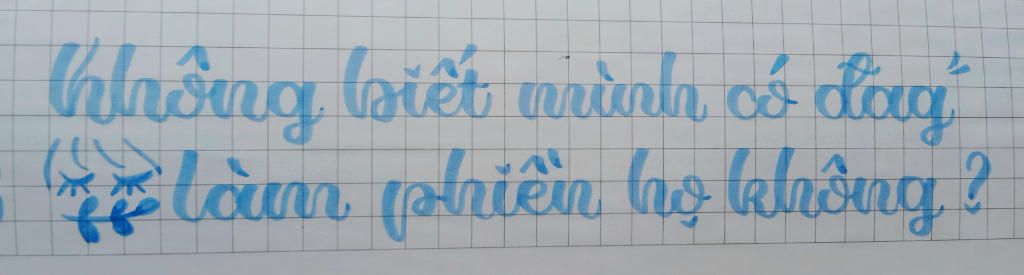 Không biết mình có đag
làm phiền họ không?